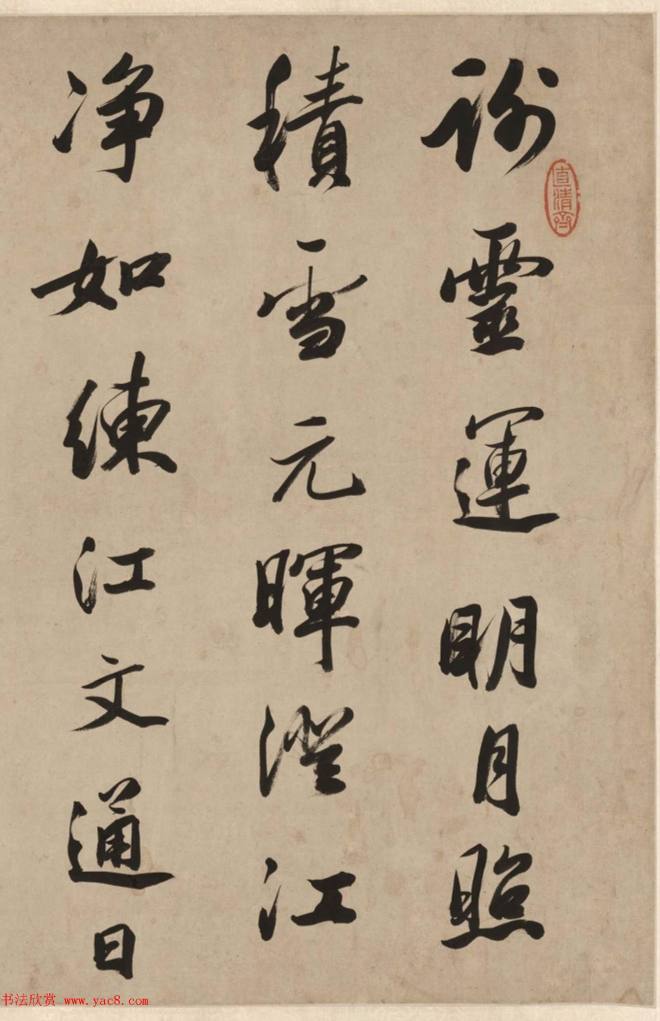 谢靈運明月照
積雪元暉澄江
净如練江文通日
直清齊
书法欣赏 www.yac8.com